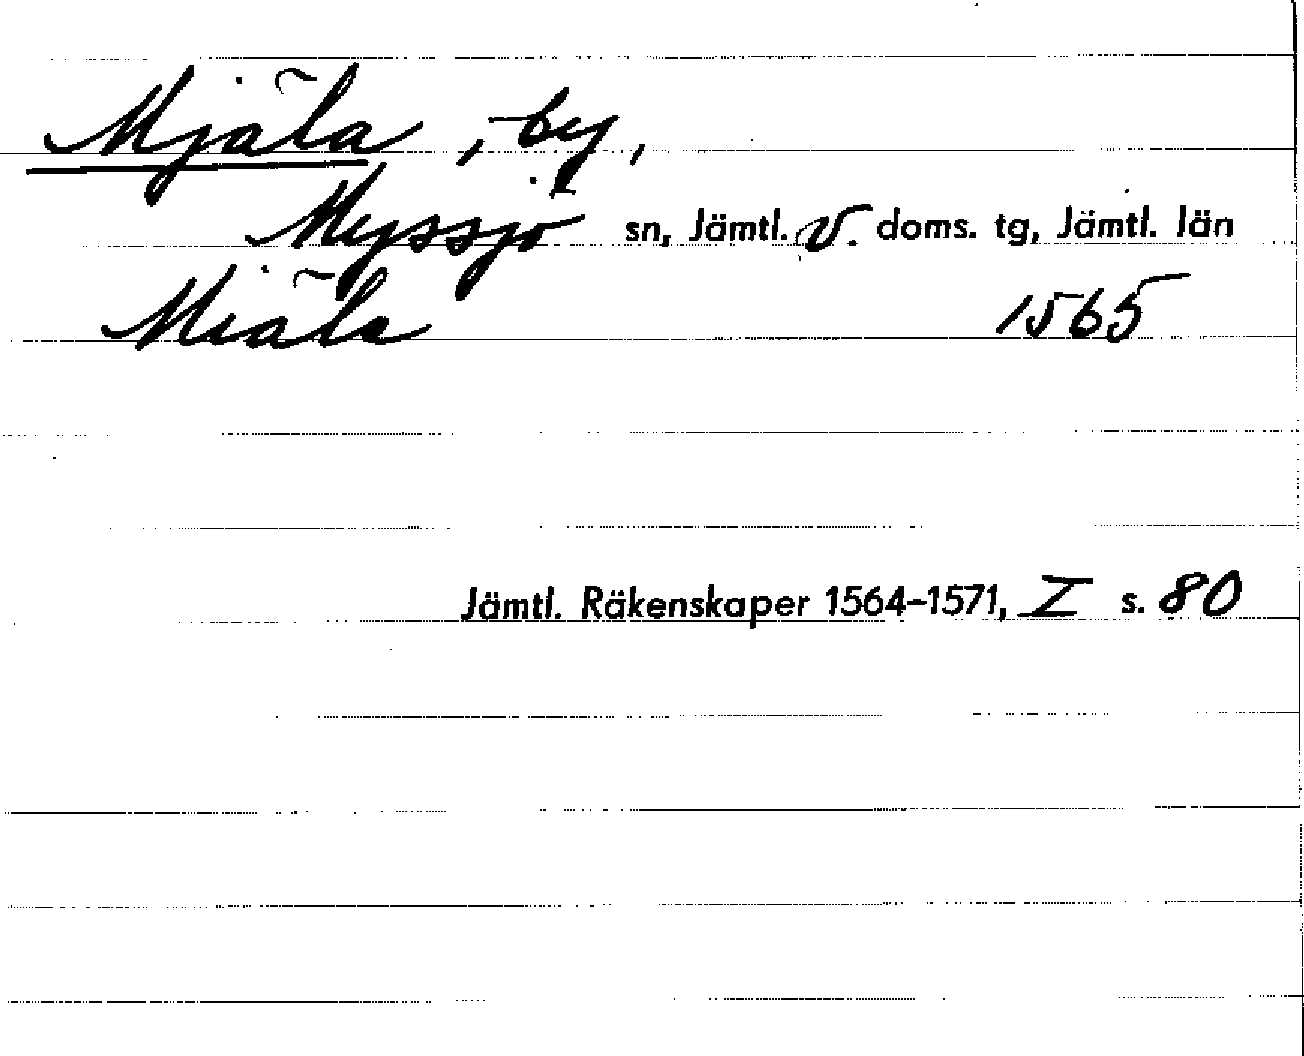 Mjäla, by,
Myssjö sn, Jämtl. v. doms. tg, Jämtl. län
Miäla 1565
Jämtl. Räkenskaper 1564-1571, I s. 80